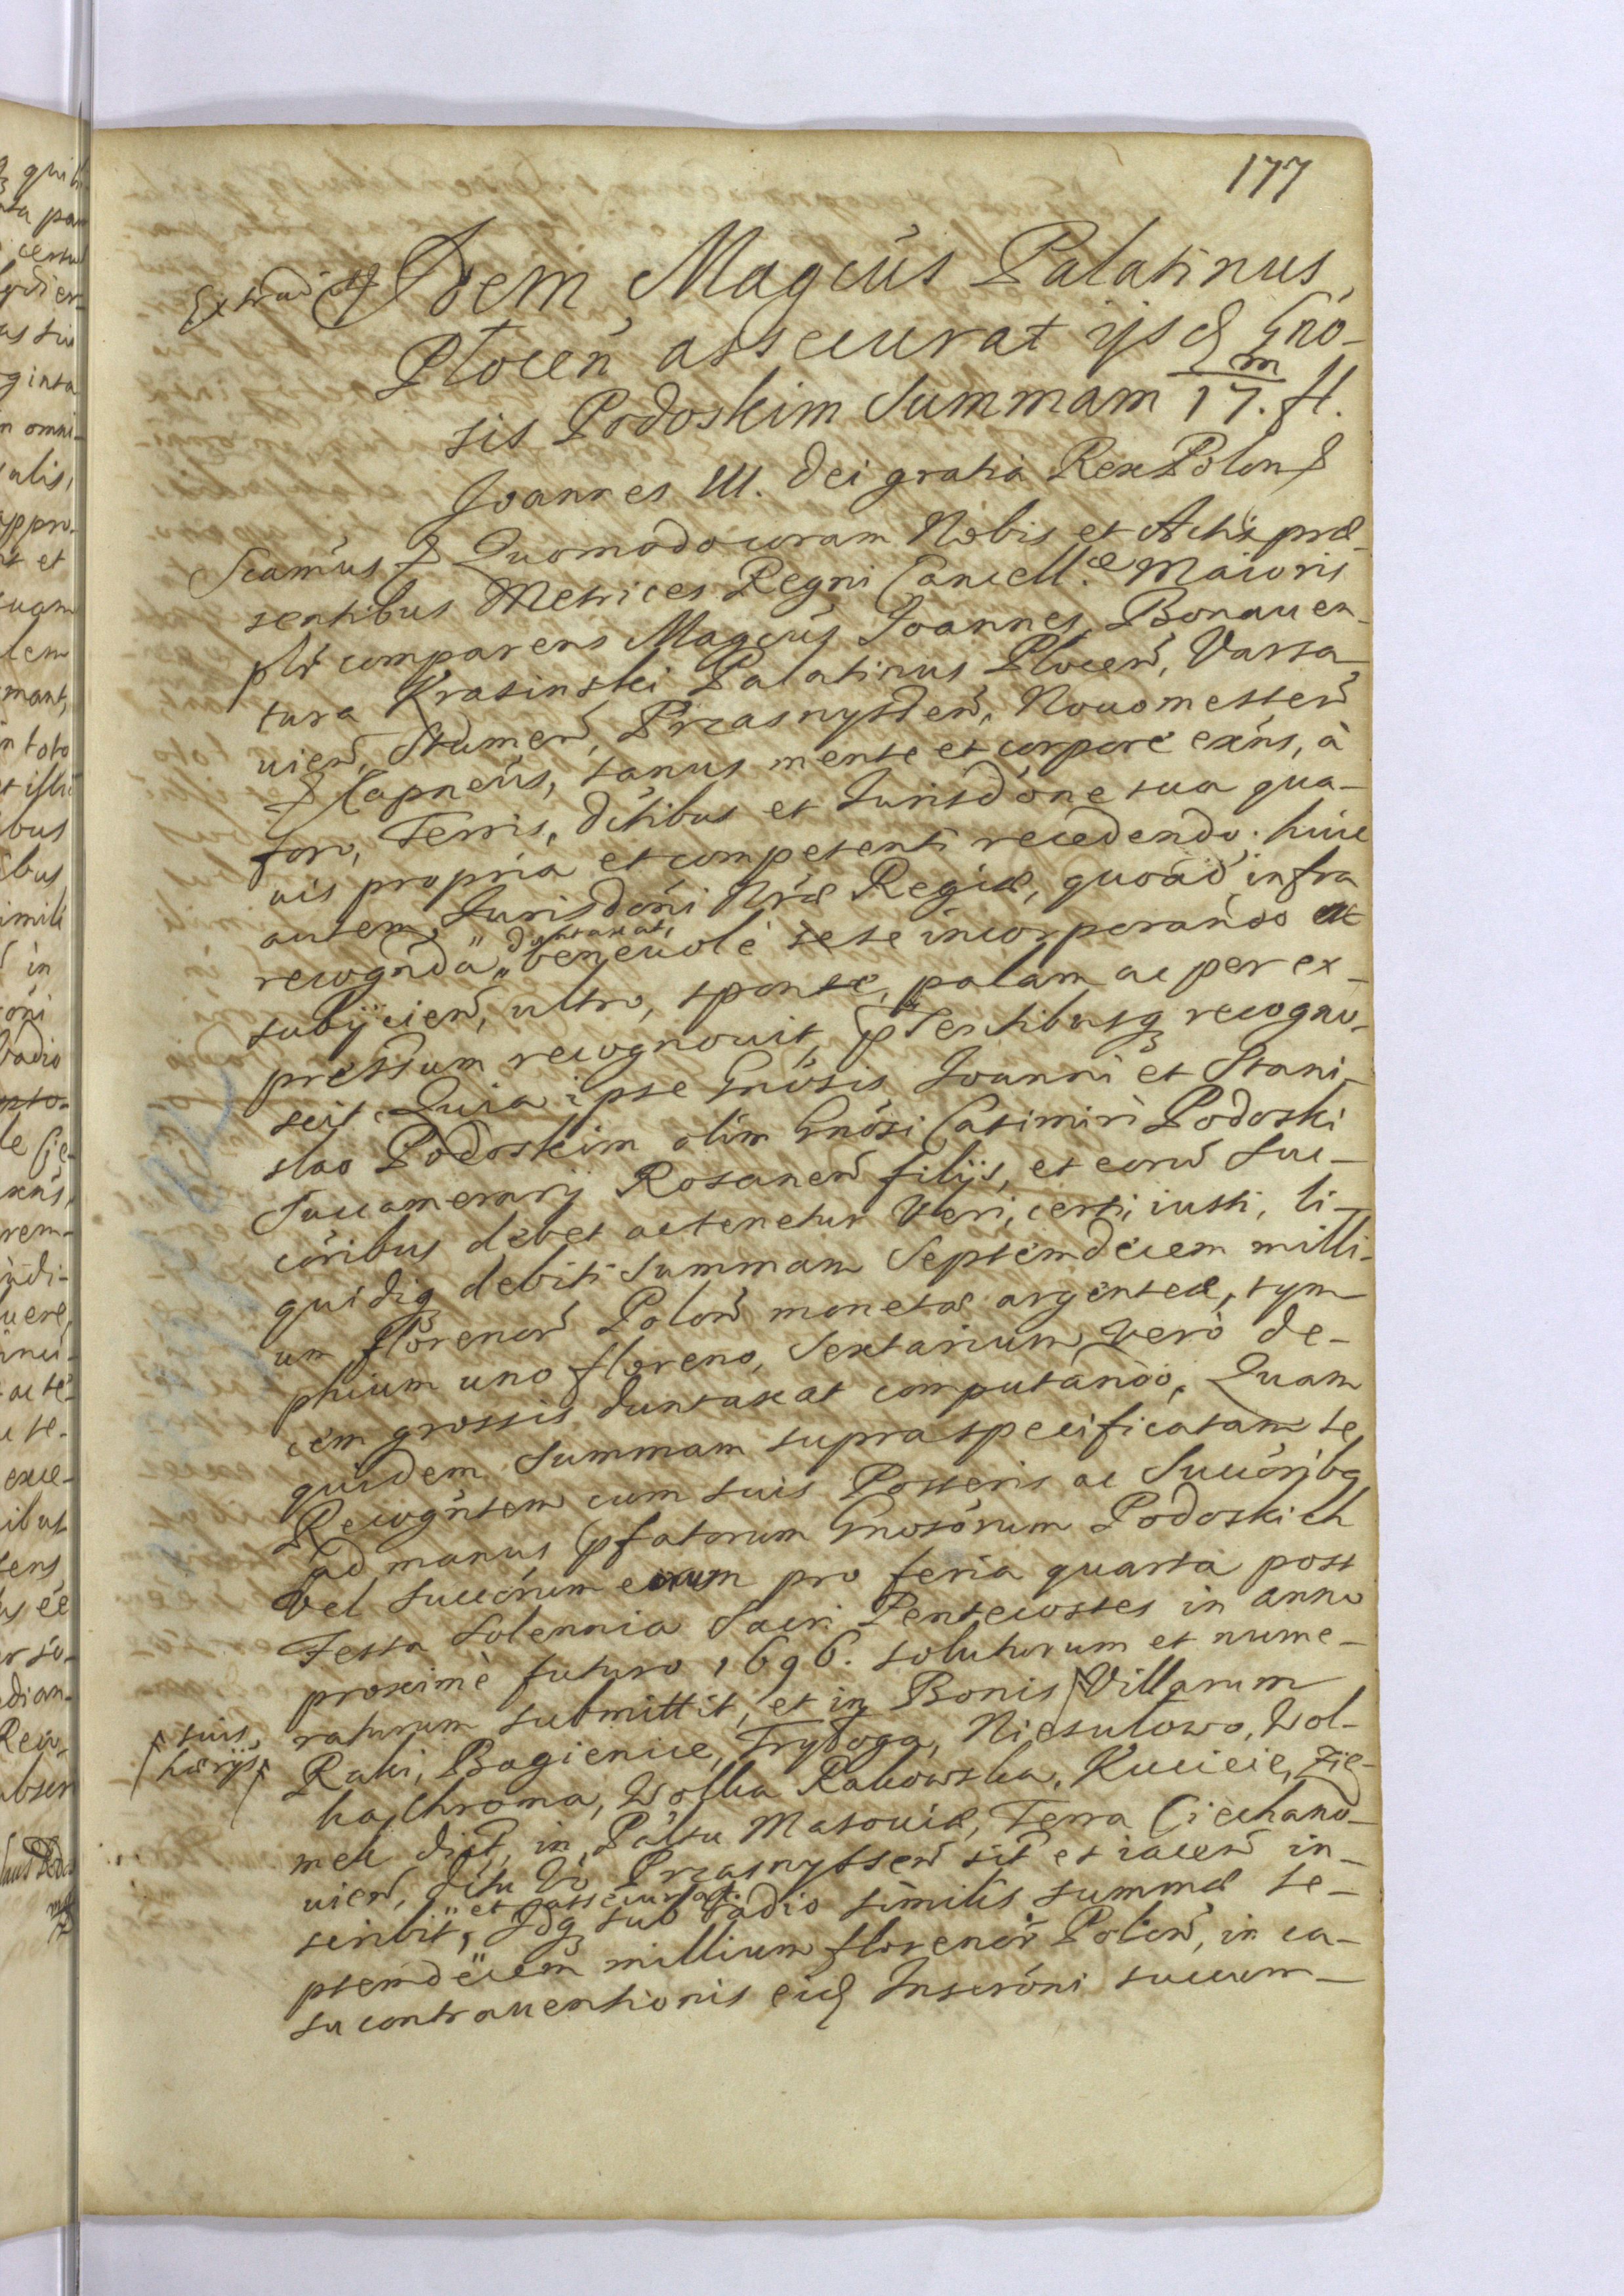 177
Extrad
Idem Magcus Palatinus
Plocen assecurat ijsd Gno-
sis Podoskim Summam 17.m fl.
Joannes III. Dei gratia Rex Polon &
Scamus & Quomodo coram Nobis et Actis præ-
sentibus Metrices Regni Cancell.æ Maioris
plr comparens Magcus Joannes Bonauen-
tura Krasinski Palatinus Plocen, Varsa-
uien, Stumen, Przasnysden, Nouomesten
& Capneus, sanus mente et corpore exns, à
foro, Terris, ditibus et Jurisdone sua qua-
uis propria et competenti recedendo, huic
autem Jurisdoni Nræ Regiæ, quoad infra
recognda " duntaxat, " beneuolè sese incorporando et
subijcien, ultro, sponte, palam ac per ex-
pressum recognouit, pr̃sentibusq recogno-
scit. Quia ipse Gnosis Joanni et Stani-
slao Podoskim olim Gnosi Casimiri Podoski
Succamerarij Rosanen filijs, et eorum suc-
coribus debet ac tenetur Veri, certi, iusti, li-
quidiq debiti Summam Septemdecem milli-
um florenor Polon monetæ argenteæ, tym-
phium uno floreno, Sextarium verò de-
cem grossis duntaxat computando. Quam
quidem Summam supraspecificatam se
Recogntem cum suis Posteris ac Succoribq
ad manus pfatorum Gnosorum Podoskich
vel succorum eorum pro feria quarta post
Festa Solennia Sacri Pentecostes in anno
proximè futuro 1696. soluturum et nume-
raturum submittit, et in Bonis Villarum
suis, hærijs
Raki, Bogienice, Frydoga, Niesulowo, Wol-
ka, Chroma, Wolka Rakowska, Kucicie, Zie-
meli dict, in Paltu Masouiæ, Terra Ciechano-
uien, dstu Vo Przasnyssen sit et iacen in-
scribit, " et assecurat. " Idq sub vadio similis summæ se-
ptemdecem millium florenor Polon, in ca-
su contrauentionis eid Inscroni succum-